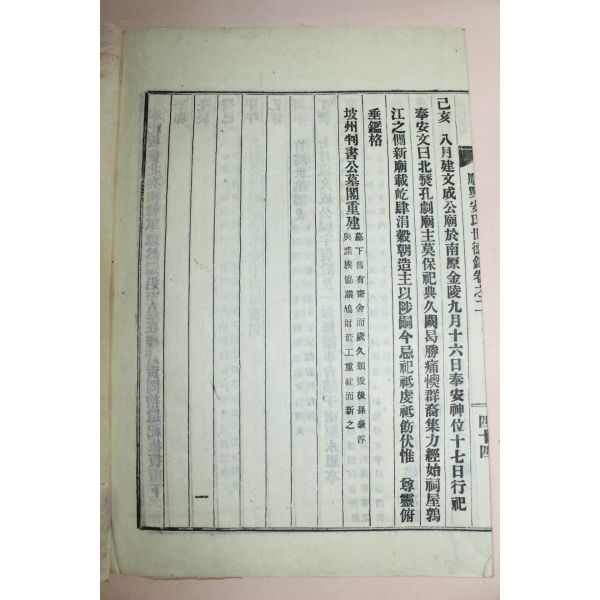 順興安氏世德錄卷之二
四十四
己亥 八月建文成公廟於南原金陵九月十六日奉安神位十七日行祀
奉安文曰北燹孔劇廟主莫保祀典久闕曷勝痛懊群裔集力經始祠屋鶉
江之側新廟載屹肆涓穀朝造主以陟嗣今忌祀祗虔祗飭伏惟 尊靈俯
垂鑑格
坡州判書公墓閣重建
墓下舊有齋舍而歲久頹毀後孫
與諸族協議鳩財董工重建而新之
一